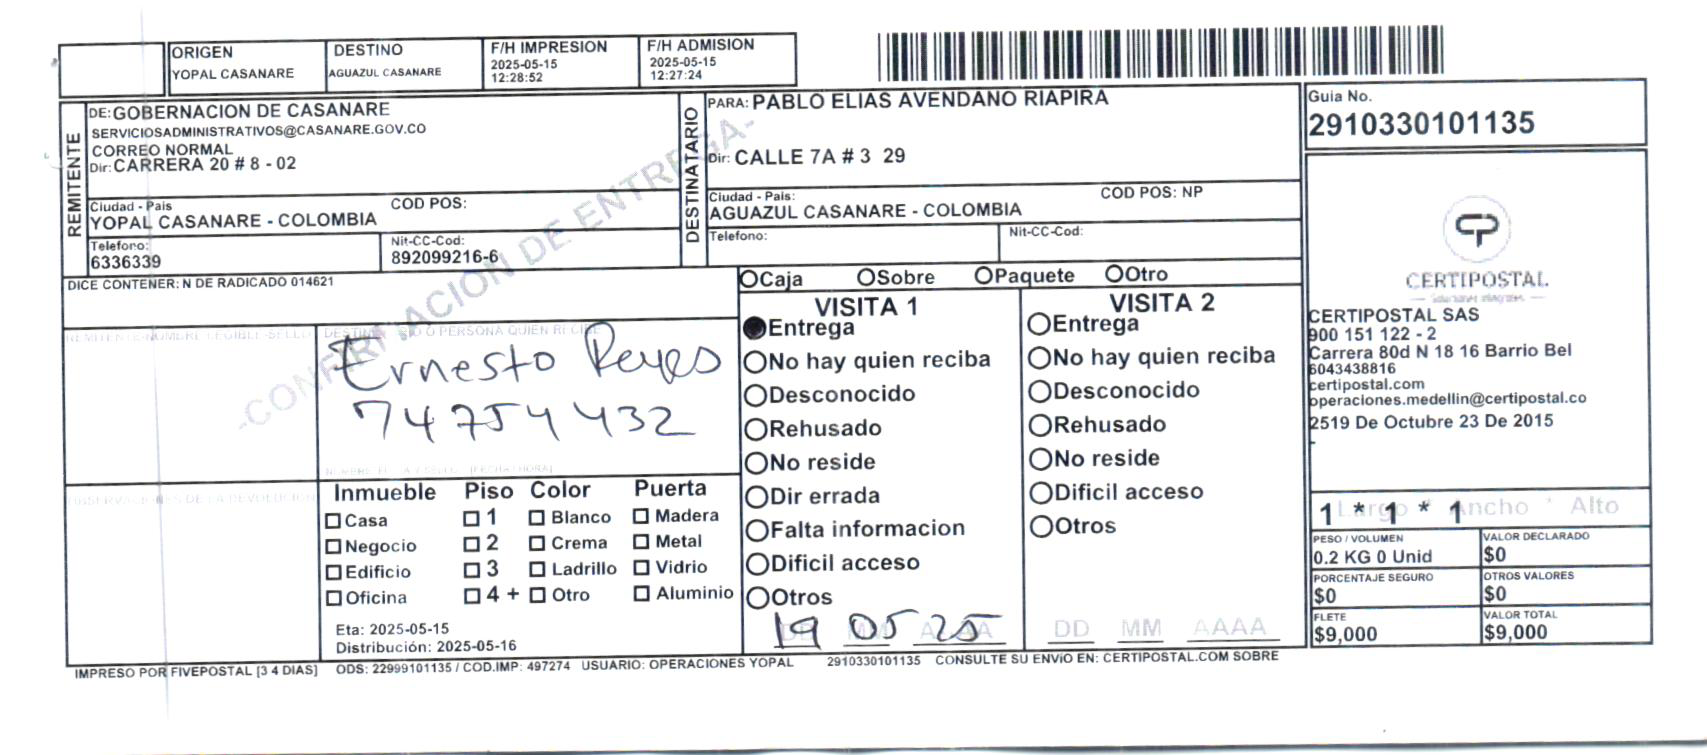 ORIGEN
YOPAL CASANARE
DESTINO
AGUAZUL CASANARE
F/H IMPRESION
2025-05-15
12:28:52
F/H ADMISION
2025-05-15
12:27:24
REMITENTE
DE: GOBERNACION DE CASANARE
SERVICIOSADMINISTRATIVOS@CASANARE.GOV.CO
CORREO NORMAL
Dir: CARRERA 20 # 8 - 02
Ciudad - Pais
COD POS:
YOPAL CASANARE - COLOMBIA
Telefono:
6336339
Nit-CC-Cod:
892099216-6
DESTINATARIO
PARA: PABLO ELIAS AVENDANO RIAPIRA
Dir: CALLE 7A # 3 29
Ciudad - Pais:
COD POS: NP
AGUAZUL CASANARE - COLOMBIA
Telefono:
Nit-CC-Cod:
Guia No.
2910330101135
CERTIPOSTAL
CERTIPOSTAL SAS
900 151 122 - 2
Carrera 80d N 18 16 Barrio Bel
6043438816
certipostal.com
operaciones.medellin@certipostal.co
2519 De Octubre 23 De 2015
-
1 * 1 * 1
Largo * Ancho * Alto
PESO / VOLUMEN
0.2 KG 0 Unid
VALOR DECLARADO
$0
PORCENTAJE SEGURO
$0
OTROS VALORES
$0
FLETE
$9,000
VALOR TOTAL
$9,000
DICE CONTENER: N DE RADICADO 014621
-CONFIRMACION DE ENTREGA-
REMITENTE-NOMBRE LEGIBLE-SELLO
DESTINATARIO O PERSONA QUIEN RECIBE
Ernesto Reyes
74754432
OBSERVACIONES DE LA DEVOLUCION
Inmueble Piso Color Puerta
Casa 1 Blanco Madera
Negocio 2 Crema Metal
Edificio 3 Ladrillo Vidrio
Oficina 4 + Otro Aluminio
Eta: 2025-05-15
Distribución: 2025-05-16
Caja Sobre Paquete Otro
VISITA 1
Entrega
No hay quien reciba
Desconocido
Rehusado
No reside
Dir errada
Falta informacion
Dificil acceso
Otros
DD MM AAAA
19 05 25
VISITA 2
Entrega
No hay quien reciba
Desconocido
Rehusado
No reside
Dificil acceso
Otros
DD MM AAAA
IMPRESO POR FIVEPOSTAL [3 4 DIAS] ODS: 22999101135 / COD.IMP: 497274 USUARIO: OPERACIONES YOPAL 2910330101135 CONSULTE SU ENVIO EN: CERTIPOSTAL.COM SOBRE